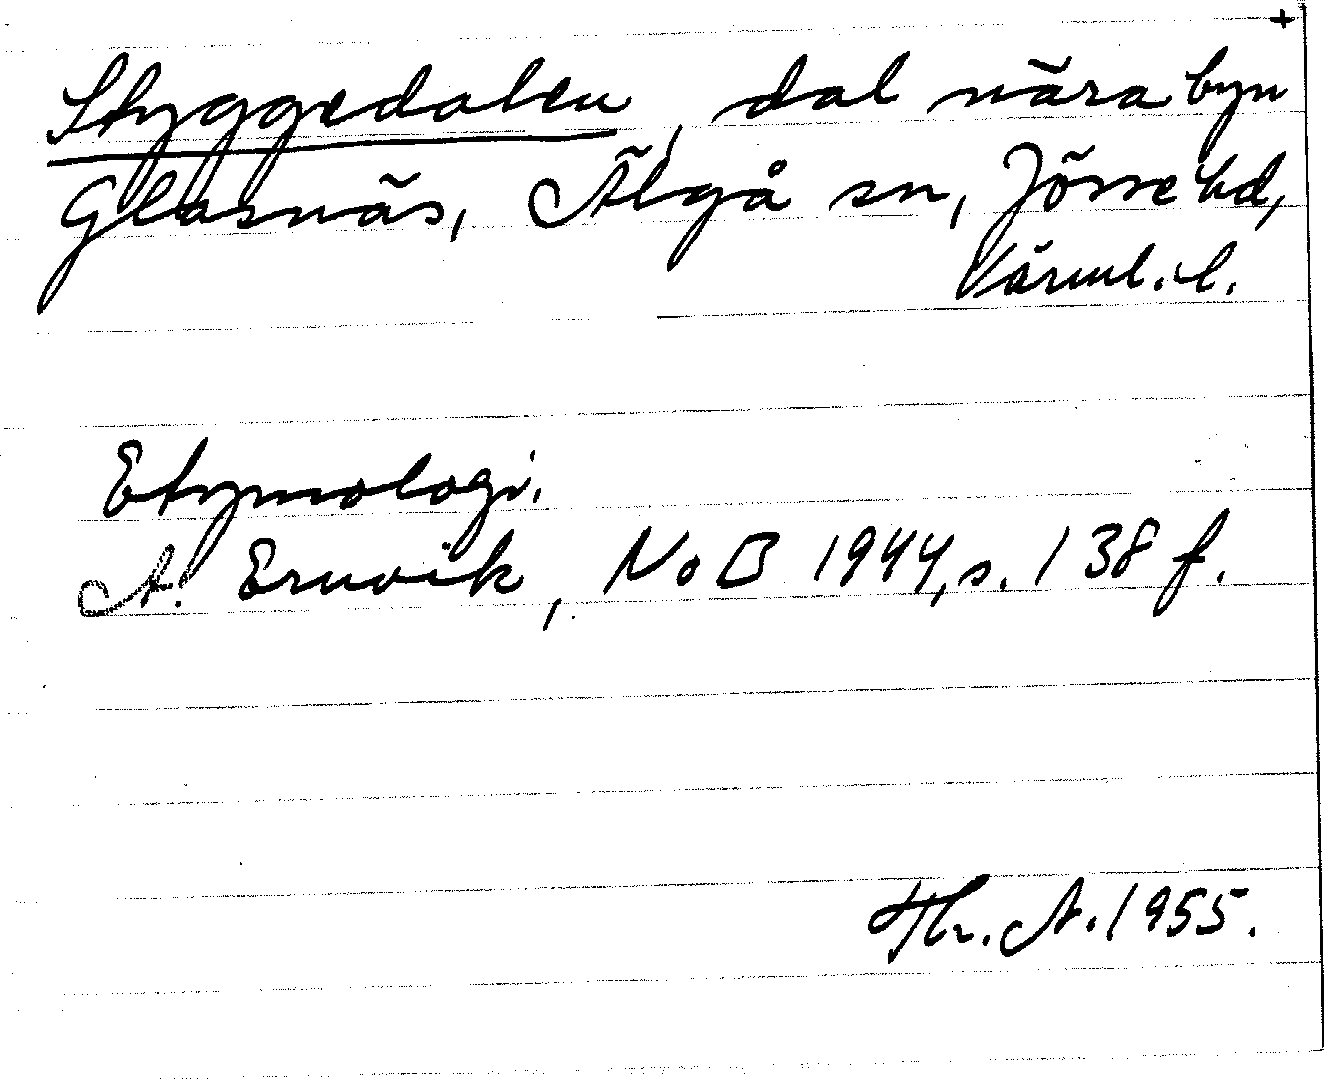 +
Styggedalen, dal nära byn
Glasnäs, Älgå sn, Jösse hd,
Värml. l.
Etymologi.
A. Ernvik, NoB 1944, s. 138 f.
Thr. A. 1955.